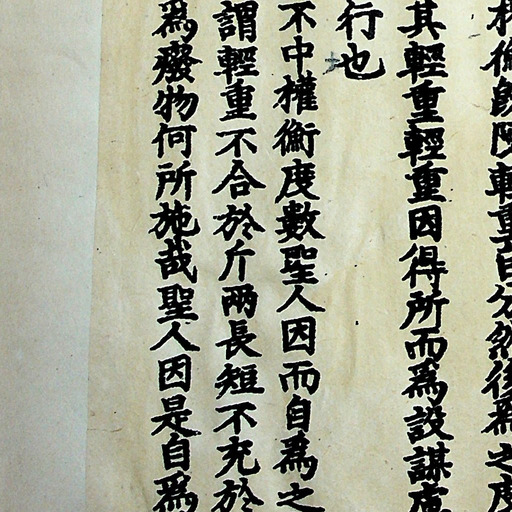 權衡既陳輕重自分然後為之度
其輕重輕重因得所而為設謀慮
行也
不中權衡度數聖人因而自為之
謂輕重不合於斤兩長短不充於
為癈物何所施哉聖人因是自為